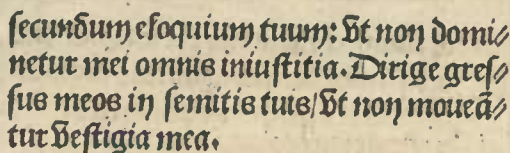 ſecundum eloquium tuum: Vt non domi⸗
netur mei omnis iniuſtitia. Dirige greſ⸗
ſus meos in ſemitis tuis/ Vt non moueā⸗
tur veſtigia mea.